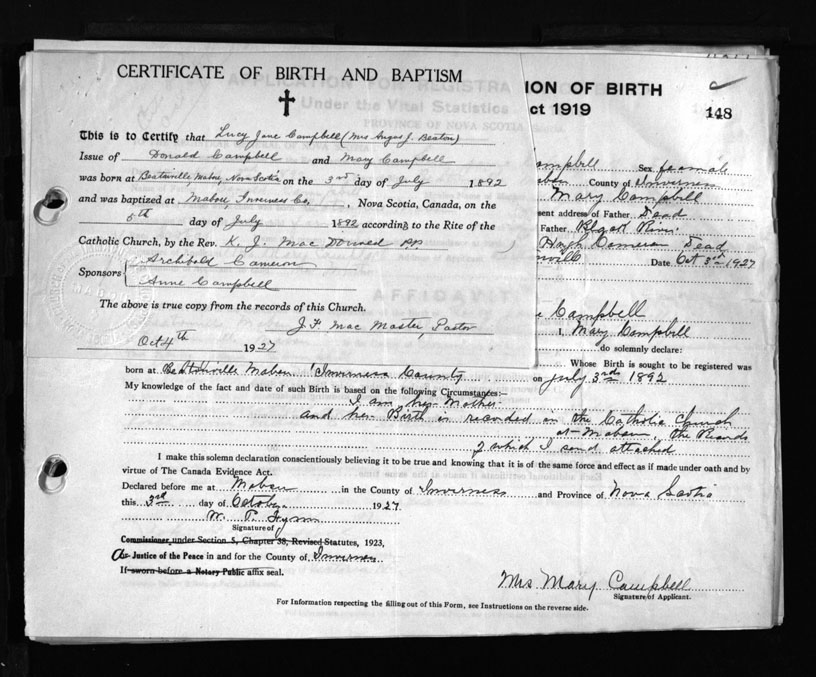 CERTIFICATE OF BIRTH AND BAPTISM
This is to Certify that Lucy Jane Campbell (Mrs Angus J. Beaton)
Issue of Donald Campbell and Mary Campbell
was born at Beatonville, Mabou, Nova Scotia on the 3rd day of July 1892
and was baptized at Mabou Inverness Co., Nova Scotia, Canada, on the
5th day of July 1892 according to the Rite of the
Catholic Church, by the Rev. K. J. Mac Donald PP
Sponsors Archibald Cameron
Anne Campbell
The above is true copy from the records of this Church.
J. F. Mac Master, Pastor
Oct 4th 1927
ION OF BIRTH
ct 1919
148
ampbell Sex female
County of Inverness
Mary Campbell
sent address of Father Dead
Father
Hugh Cameron Dead
Date Oct 3rd 1927
Campbell
I, Mary Campbell
do solemnly declare:
Whose Birth is sought to be registered was
born at Beatonville Mabou Inverness County on July 3rd 1892
My knowledge of the fact and date of such Birth is based on the following Circumstances:—
I am her Mother
and her Birth is recorded in the Catholic Church
at Mabou, the Records
of which I send attached
I make this solemn declaration conscientiously believing it to be true and knowing that it is of the same force and effect as if made under oath and by
virtue of The Canada Evidence Act.
Declared before me at Mabou in the County of Inverness and Province of Nova Scotia
this 3rd day of October 1927
Signature of
Commissioner, under Section 5, Chapter 38, Revised Statutes, 1923,
A Justice of the Peace in and for the County of Inverness
If sworn before a Notary Public affix seal.
Mrs Mary Campbell
Signature of Applicant.
For Information respecting the filling out of this Form, see Instructions on the reverse side.